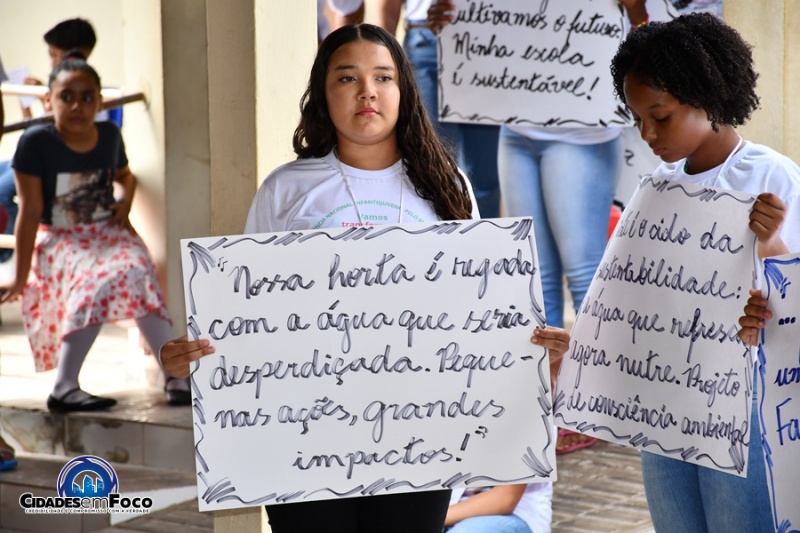 Cultivamos o futuro.
Minha escola
é sustentável!
"Nossa horta é regada
com a água que seria
desperdiçada. Peque-
nas ações, grandes
impactos!"
é o ciclo da
sustentabilidade:
a água que refresca
agora nutre. Projeto
de consciência ambiental
CidadesemFoco
CREDIBILIDADE E COMPROMISSO COM A VERDADE